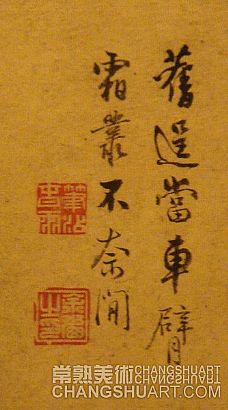 舊逞當車臂
霜叢不奈閒
常熟美術 CHANGSHUART
CHANGSHUART.COM